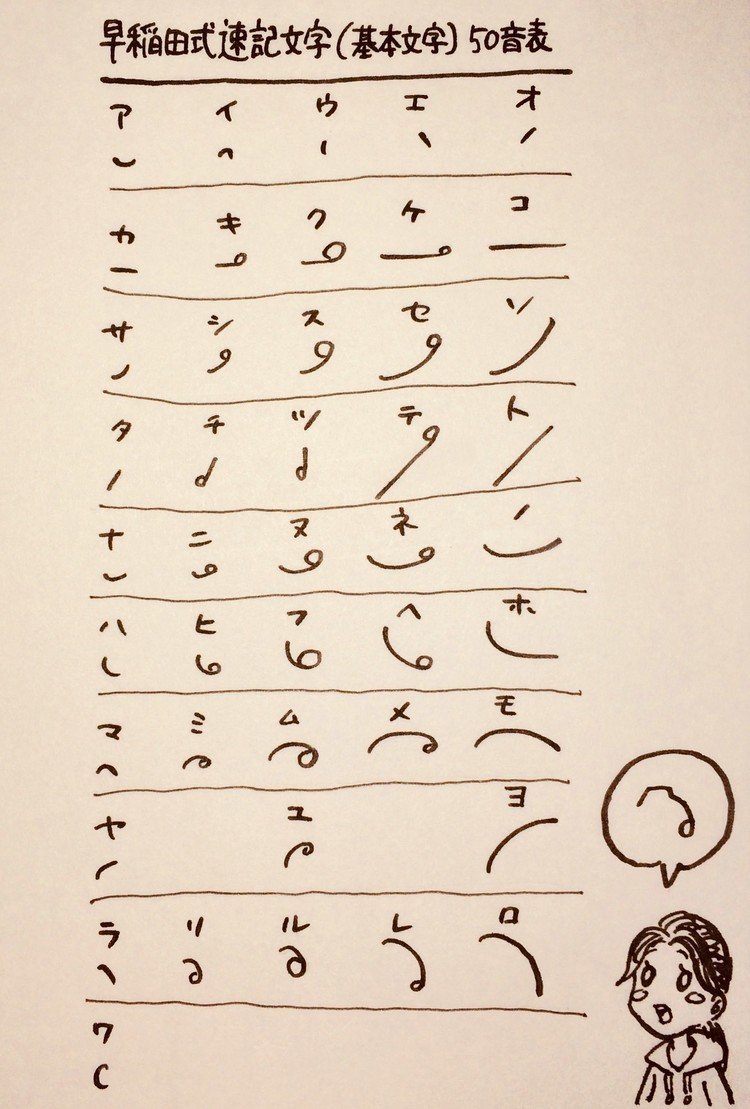 早稲田式速記文字(基本文字)50音表
ア イ ウ エ オ
カ キ ク ケ コ
サ シ ス セ ソ
タ チ ツ テ ト
ナ ニ ヌ ネ ノ
ハ ヒ フ ヘ ホ
マ ミ ム メ モ
ヤ ユ ヨ
ラ リ ル レ ロ
ワ